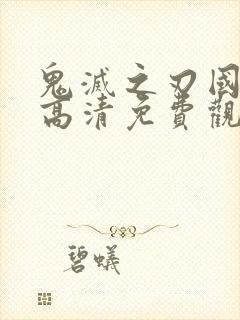 鬼滅之刃國
高清免費觀
碧蟻